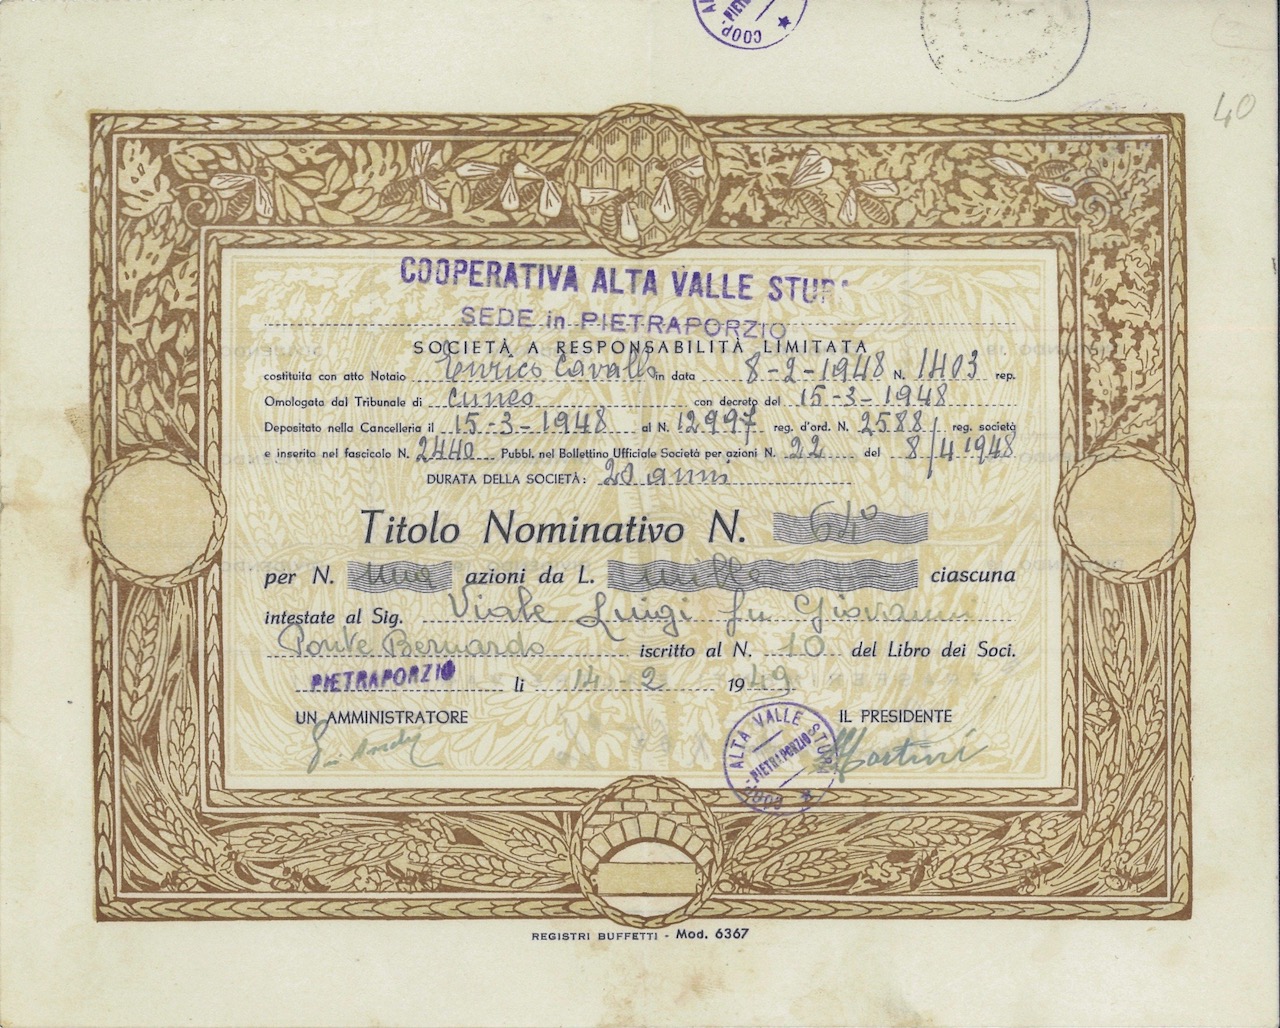 COOP. PIETR
40
COOPERATIVA ALTA VALLE STUR
SEDE in PIETRAPORZIO
SOCIETÀ A RESPONSABILITÀ LIMITATA
costituita con atto Notaio Enrico Cavallo in data 8-2-1948 N. 1403 rep.
Omologata dal Tribunale di Cuneo con decreto del 15-3-1948
Depositato nella Cancelleria il 15-3-1948 al N. 12997 reg. d'ord. N. 2588 reg. società
e inserito nel fascicolo N. 2440 Pubbl. nel Bollettino Ufficiale Società per azioni N. 22 del 8/4 1948
DURATA DELLA SOCIETÀ: 20 anni
Titolo Nominativo N.
per N. una azioni da L. mille ciascuna
intestate al Sig. Viale Luigi fu Giovanni
Ponte Bernardo iscritto al N. 10 del Libro dei Soci.
PIETRAPORZIO li 14-2 1949
UN AMMINISTRATORE IL PRESIDENTE
Martini
ALTA VALLE STURA PIETRAPORZIO COOP.
REGISTRI BUFFETTI - Mod. 6367